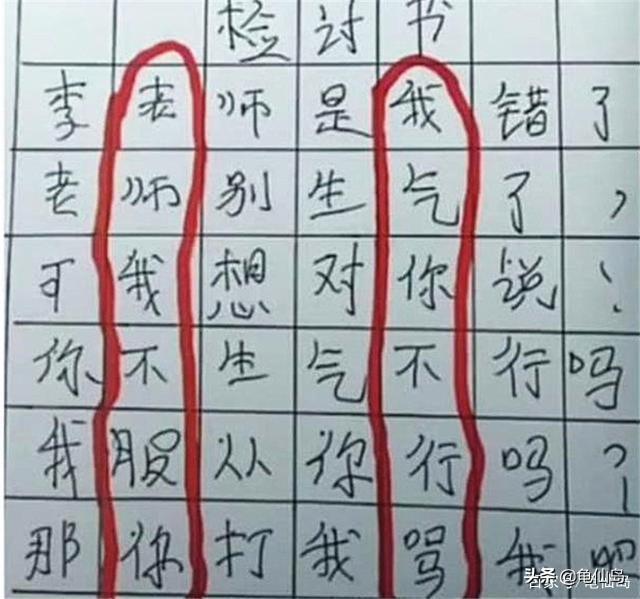 检讨书
李老师是我错了
老师别生气了,
可我想对你说!
你不生气不行吗
我服从你行吗?
那你打我骂我吧
头条 @龟仙岛
百家号/龟仙岛